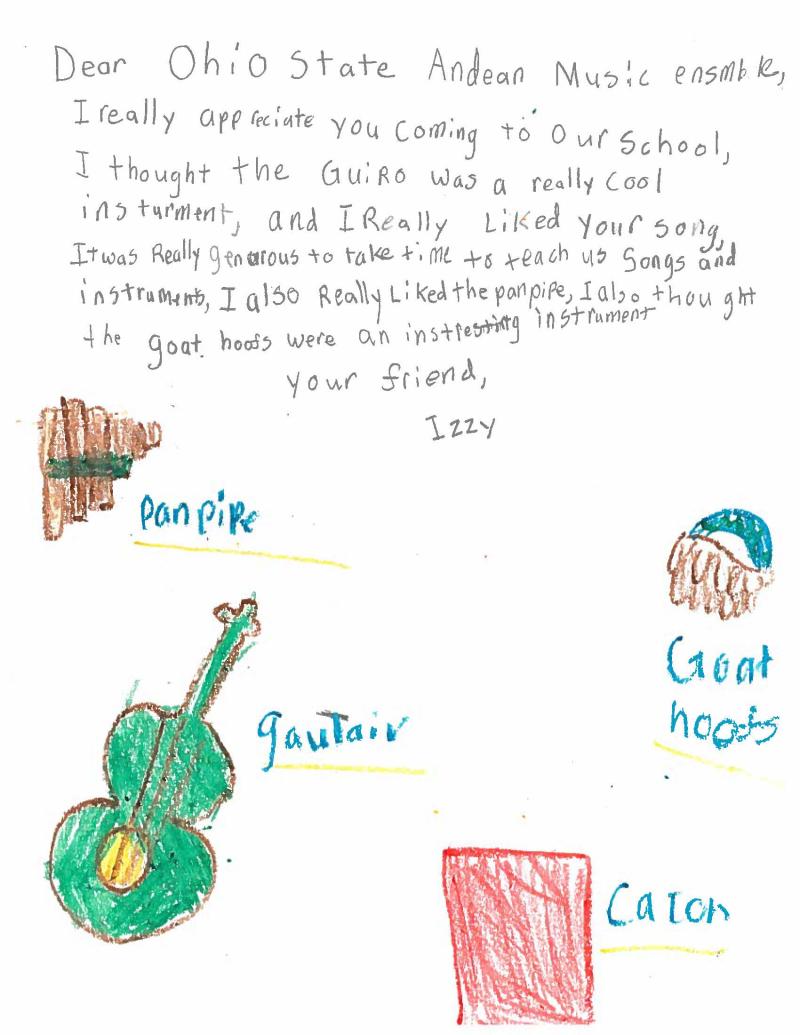 Dear Ohio State Andean Music ensmble,
I really appreciate you coming to our School,
I thought the GuiRo was a really cool
insturment, and I Really Liked your song,
It was Really generous to take time to teach us Songs and
instruments, I also Really Liked the panpipe, I also thought
the goat hoofs were an instresting instrument
your friend,
Izzy
panpipe
Goat
hoofs
gautair
Caion